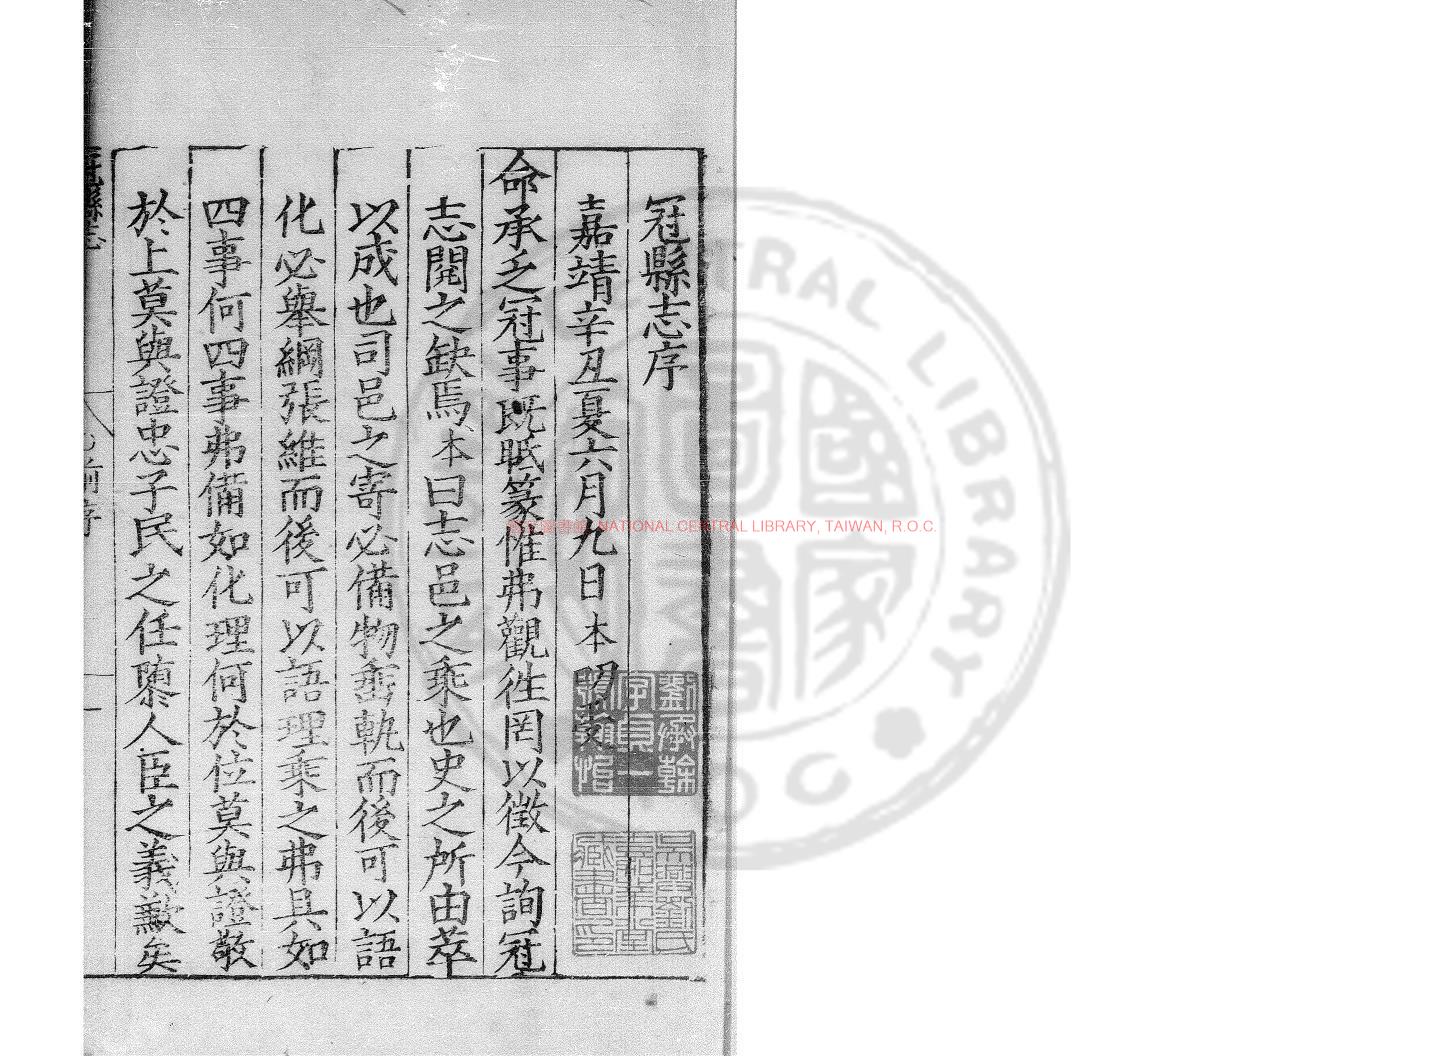 冠縣志序
嘉靖辛丑夏六月九日本明受
命承乏冠事既眂篆惟弗觀徃罔以徵今詢冠
志閱之缺焉本曰志邑之乘也史之所由萃
以成也司邑之寄必備物垂軌而後可以語
化必舉綱張維而後可以語理乘之弗具如
四事何四事弗備如化理何於位莫與證敬
於上莫與證忠子民之任隳人臣之義歝矣
冠縣志
前序
劉承幹字貞一號翰怡
吳興劉氏嘉業堂藏書印
NATIONAL CENTRAL LIBRARY, TAIWAN, R.O.C.